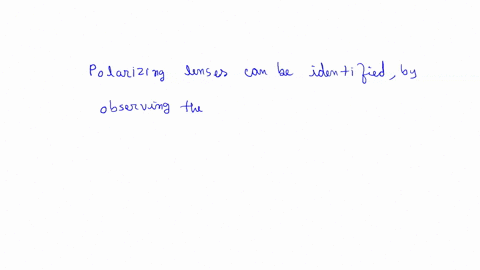 Polarizing lenses can be identified, by
observing the